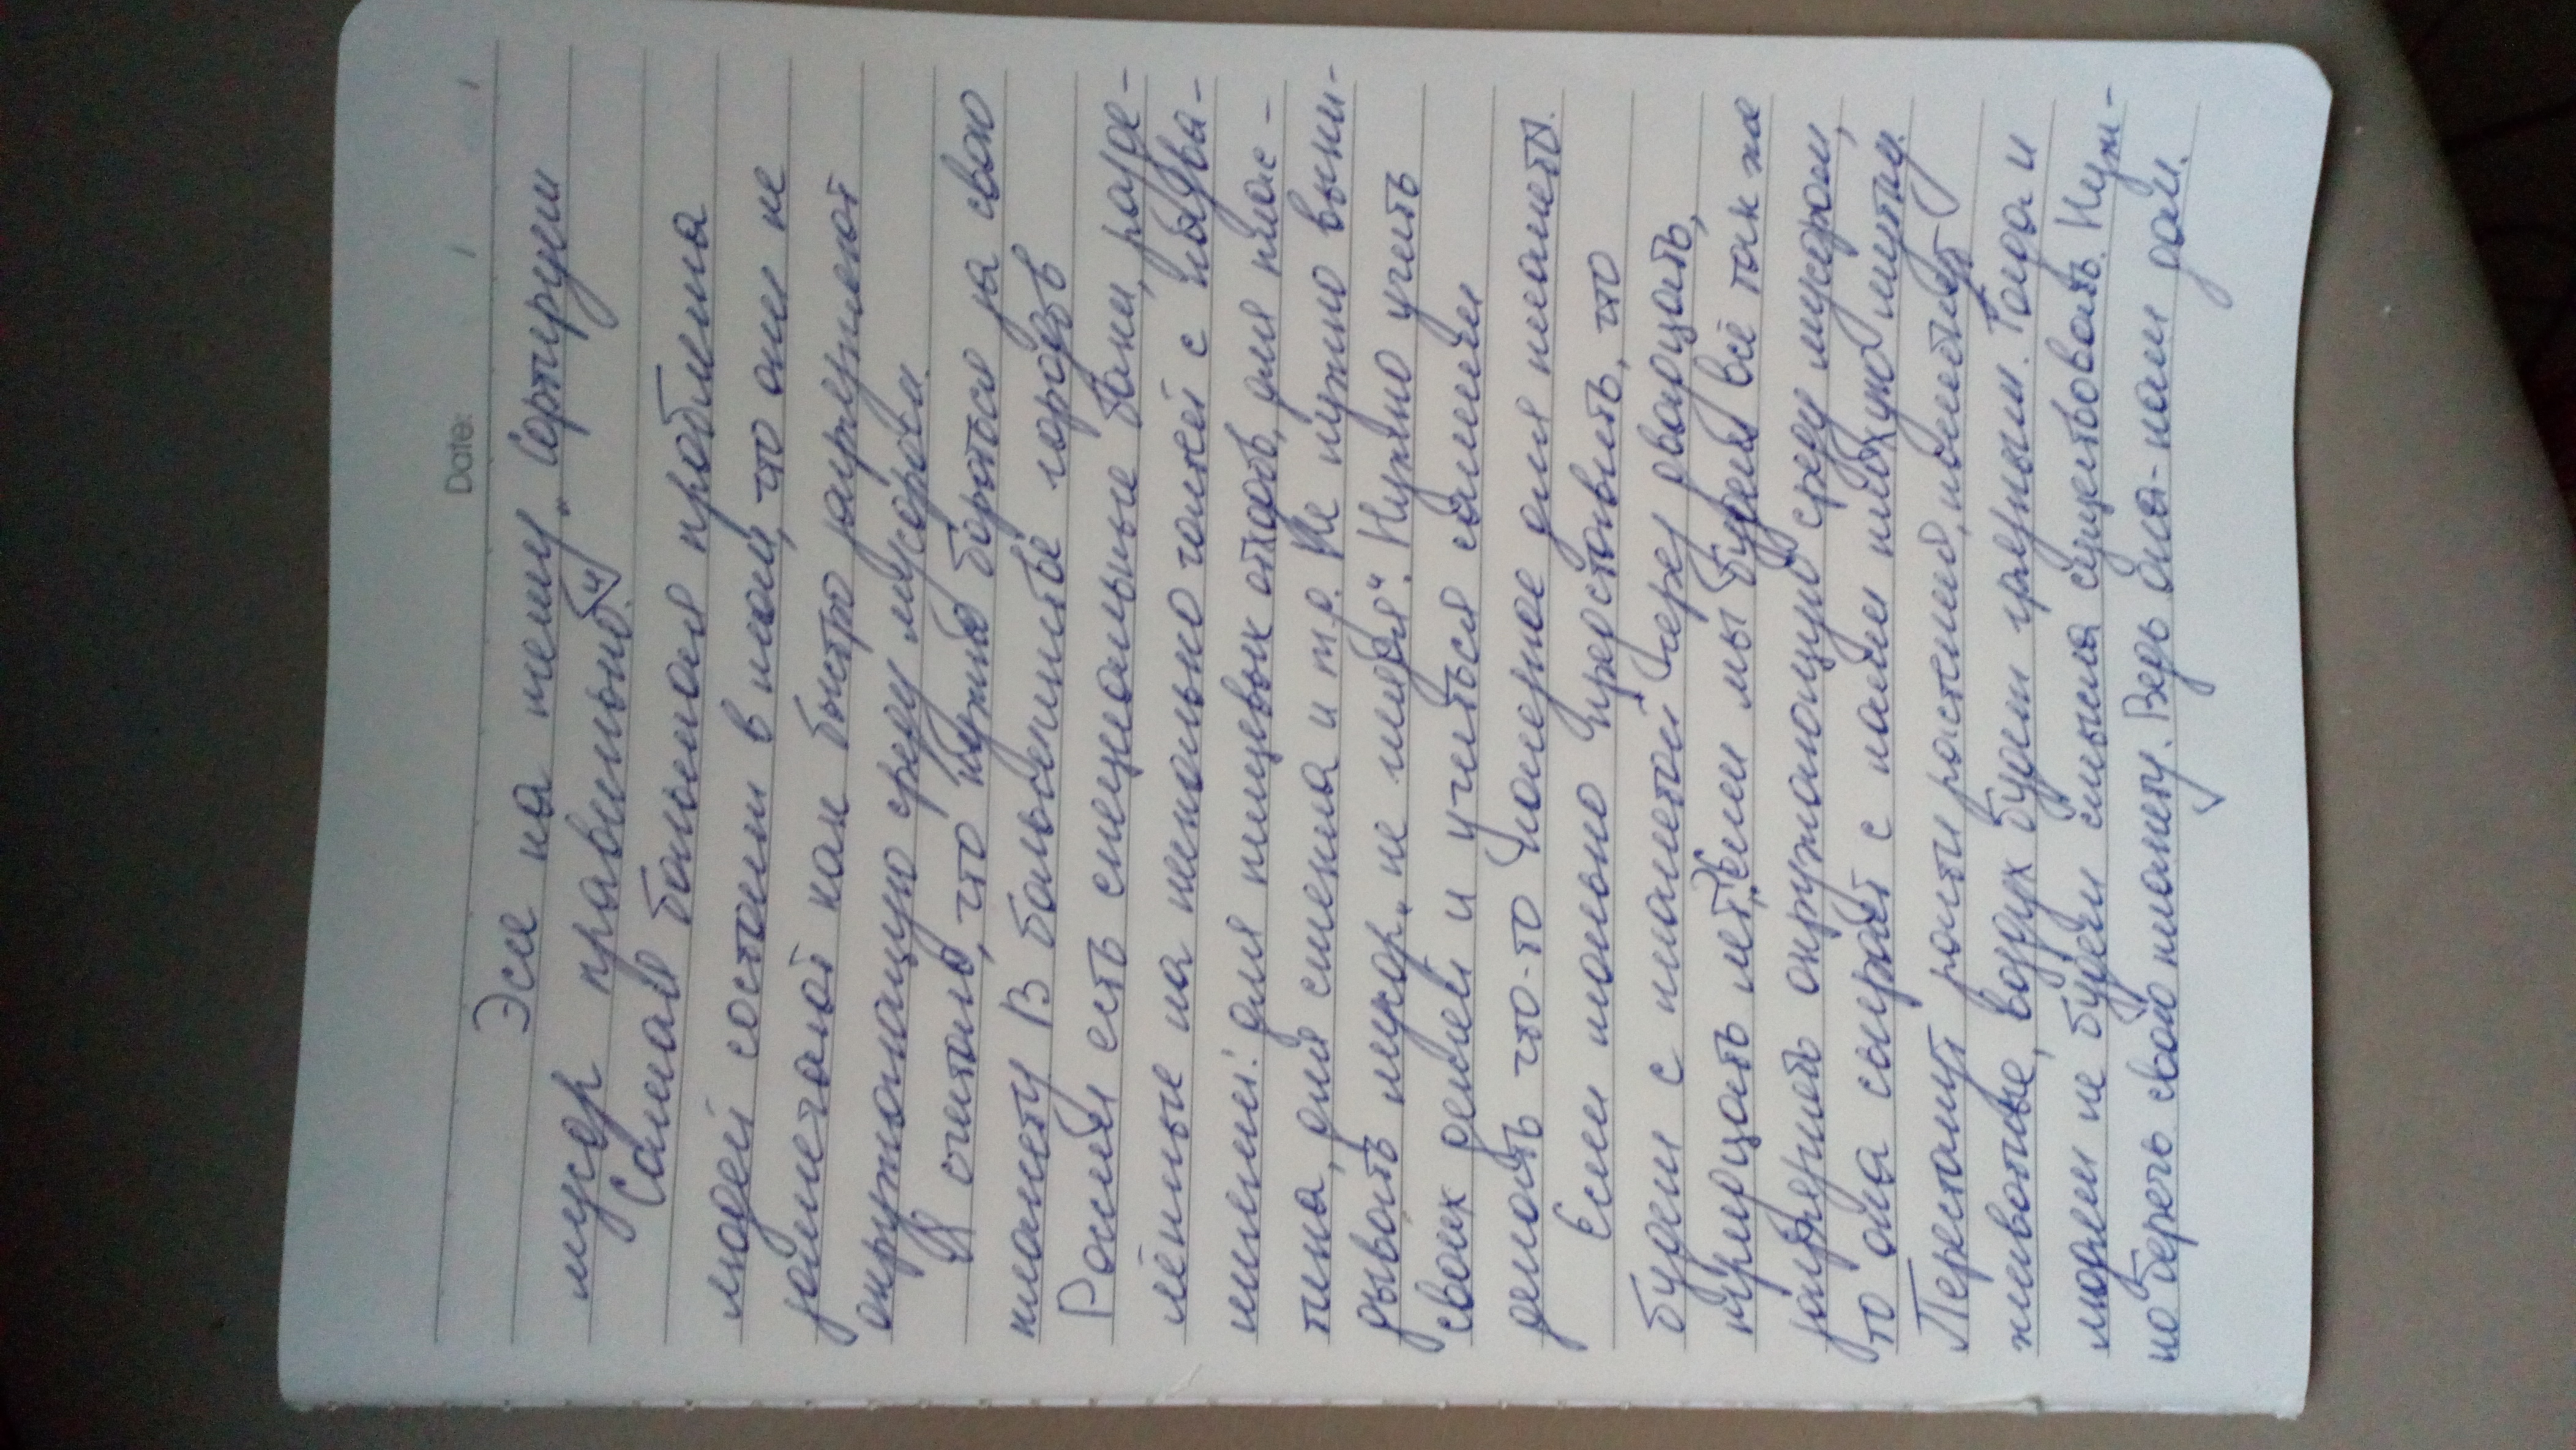 Date:
Эссе на тему „Сортируем
мусор правильно."
Самая большая проблема
людей состоит в том, что они не
замечают как быстро загрязняют
окружающую среду мусором.
Я считаю, что нужно бороться за свою
планету. В большинстве городов
России есть специальные баки, разде-
лённые на несколько частей с назва-
ниями: для пищевых отходов, для плас-
тика, для стекла и т.д. Не нужно выки-
дывать мусор „не глядя". Нужно учить
своих детей и учиться самим
делать что-то полезное для планеты.
Если только представить, что
будет с планетой через двадцать,
тридцать лет. Если мы будем всё так же
загрязнять окружающую среду мусором,
то она сыграет с нами плохую шутку.
Перестанут расти растения, исчезнут
животные, воздух будет грязным. Тогда и
людям не будет смысла существовать. Нуж-
но беречь свою планету. Ведь она-наш дом.